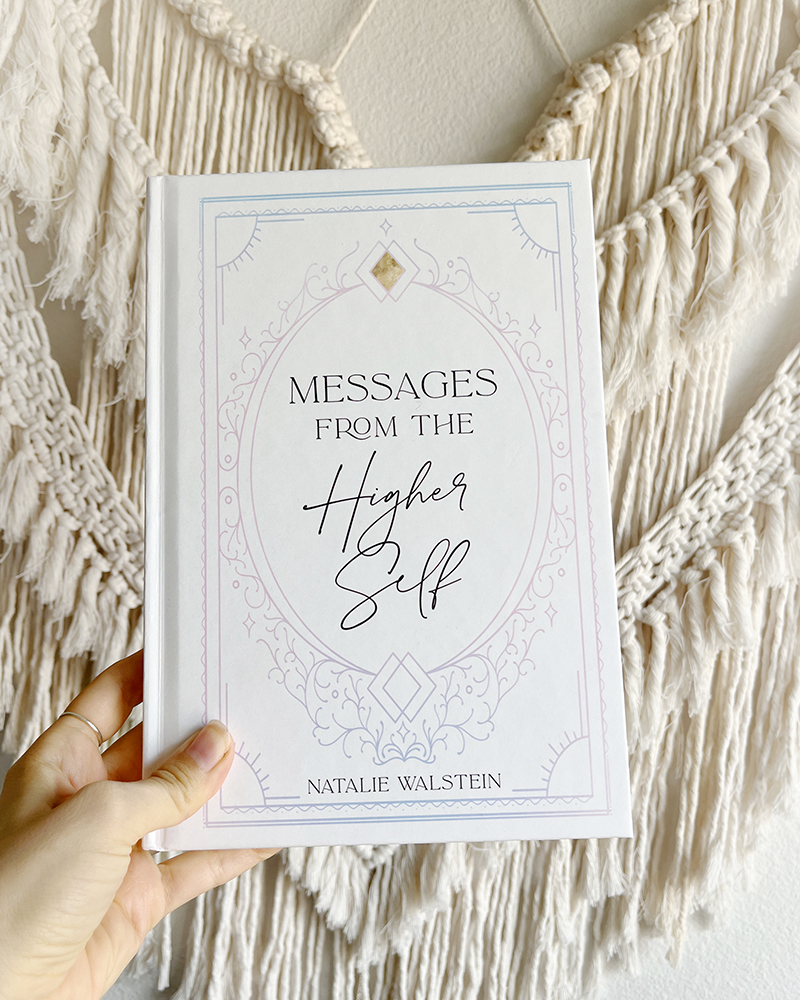 MESSAGES
FROM THE
Higher
Self
NATALIE WALSTEIN